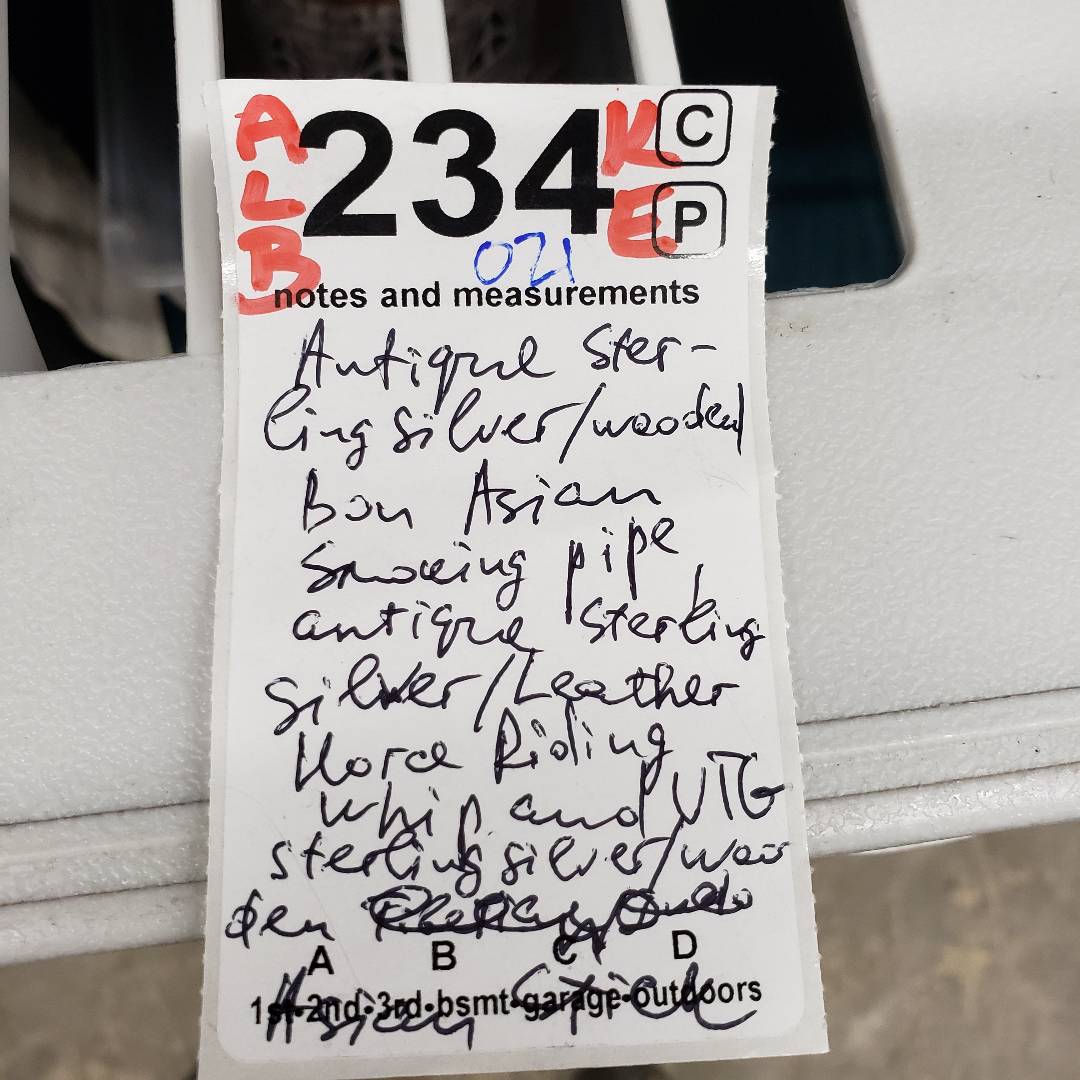 A 234 K C
L
B E P
021
notes and measurements
Antique Ster-
ling silver/wooden
Bon Asian
Smoking pipe,
antique Sterling
silver/Leather
Horce Riding
whip and VTG
sterling silver/woo
den
A B C D
1st•2nd•3rd•bsmt•garage•outdoors
Asian Stick